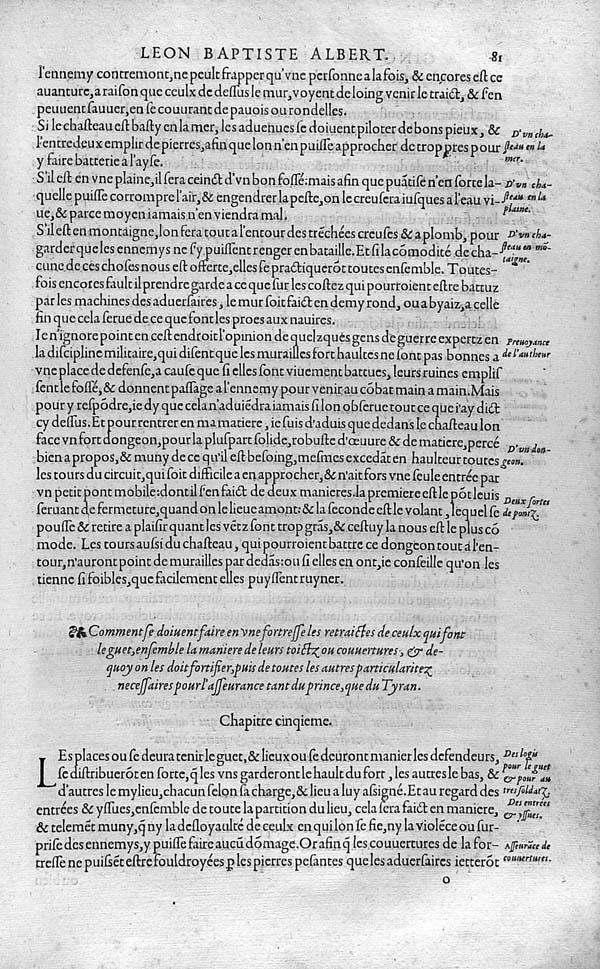 LEON BAPTISTE ALBERT. 81
l'ennemy contremont, ne peult frapper qu'vne personne a la fois, & encores est ce
auanture, a raison que ceulx de dessus le mur, voyent de loing venir le traict, & s'en
peuuent sauuer, en se couurant de pauois ou rondelles.
Si le chasteau est basty en la mer, les aduenues se doiuent piloter de bons pieux, &
l'entredeux emplir de pierres, afin que lon n'en puisse approcher de trop pres pour
y faire batterie a l'ayse.
D'vn cha-
steau en la
mer.
S'il est en vne plaine, il sera ceinct d'vn bon fossé: mais afin que puãtise n'en sorte la-
quelle puisse corrompre l'air, & engendrer la peste, on le creusera iusques a l'eau vi-
ue, & parce moyen iamais n'en viendra mal.
D'vn cha-
steau en
plaine.
S'il est en montaigne, lon fera tout a l'entour des trẽchées creuses & a plomb, pour
garder que les ennemys ne s'y puissent renger en bataille. Et si la cõmodité de cha-
cune de ces choses nous est offerte, elles se practiquerõt toutes ensemble. Toutes-
fois encores fault il prendre garde a ce que sur les costez qui pourroient estre battuz
par les machines des aduersaires, le mur soit faict en demy rond, ou a byaiz, a celle
fin que cela serue de ce que font les proes aux nauires.
D'vn cha-
steau en mõ-
taigne.
Ie n'ignore point en cest endroit l'opinion de quelzques gens de guerre expertz en
la discipline militaire, qui disent que les murailles fort haultes ne sont pas bonnes a
vne place de defense, a cause que si elles sont viuement battues, leurs ruines emplis
sent le fossé, & donnent passage a l'ennemy pour venir au cõbat main a main. Mais
pour y respõdre, ie dy que cela n'aduiẽdra iamais si lon obserue tout ce que i'ay dict
cy dessus. Et pour rentrer en ma matiere, ie suis d'aduis que dedans le chasteau lon
face vn fort dongeon, pour la pluspart solide, robuste d'œuure & de matiere, percé
bien a propos, & muny de ce qu'il est besoing, mesmes excedãt en haulteur toutes
les tours du circuit, qui soit difficile a en approcher, & n'ait fors vne seule entrée par
vn petit pont mobile: dont il s'en faict de deux manieres. la premiere est le põt leuis
seruant de fermeture, quand on le lieue amont: & la seconde est le volant, lequel se
pousse & retire a plaisir quant les vẽtz sont trop grãs, & cestuy la nous est le plus cõ
mode. Les tours aussi du chasteau, qui pourroient battre ce dongeon tout a l'en-
tour, n'auront point de murailles par dedãs: ou si elles en ont, ie conseille qu'on les
tienne si foibles, que facilement elles puyssent ruyner.
Preuoyance
de l'autheur
D'vn don-
geon.
Deux sortes
de pontz.
Comment se doiuent faire en vne fortresse les retraictes de ceulx qui font
le guet, ensemble la maniere de leurs toictz ou couuertures, & de-
quoy on les doit fortifier, puis de toutes les autres particularitez
necessaires pour l'asseurance tant du prince, que du Tyran.
Chapitre cinqieme.
LEs places ou se deura tenir le guet, & lieux ou se deuront manier les defendeurs,
se distribuerõt en sorte, q̃ les vns garderont le hault du fort, les autres le bas, &
d'autres le mylieu, chacun selon sa charge, & lieu a luy assigné. Et au regard des
entrées & yssues, ensemble de toute la partition du lieu, cela sera faict en maniere,
& telemẽt muny, q̃ ny la desloyaulté de ceulx en qui lon se fie, ny la violẽce ou sur-
prise des ennemys, y puisse faire aucũ dõmage. Or afin q̃ les couuertures de la for-
tresse ne puissẽt estre fouldroyées ꝑ les pierres pesantes que les aduersaires ietterõt
Des logis
pour le guet
& pour au
tres soldatz.
Des entrées
& yssues.
Asseurãce de
couuertures.
o